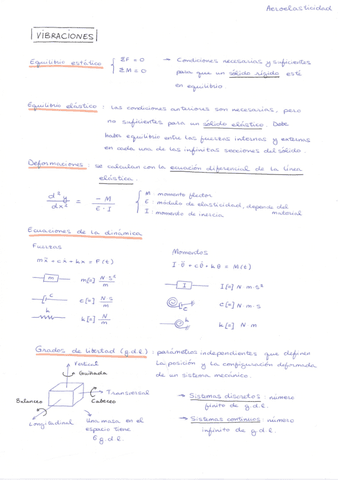 Aeroelasticidad
VIBRACIONES
Equilibrio estático { ΣF = 0 → Condiciones necesarias y suficientes
ΣM = 0 para que un sólido rígido está
en equilibrio
Equilibrio elástico : Las condiciones anteriores son necesarias, pero
no suficientes para un sólido elástico. Debe
haber equilibrio entre las fuerzas internas y externas
en cada una de las infinitas secciones del sólido.
Deformaciones : se calculan con la ecuación diferencial de la línea
elástica.
d²y/dx² = -M/(E·I) { M: momento flector
E: módulo de elasticidad, depende del material
I: momento de inercia
Ecuaciones de la dinámica
Fuerzas
mẍ + cẋ + kx = F(t)
m m[=] N·s²/m
c c[=] N·s/m
k k[=] N/m
Momentos
I·θ̈ + cθ̇ + kθ = M(t)
I I[=] N·m·s²
c c[=] N·m·s
k k[=] N·m
Grados de libertad (g.d.l) : parámetros independientes que definen
la posición y la configuración deformada
de un sistema mecánico.
Vertical
Guiñada
Transversal
Cabeceo
Balanceo
Longitudinal
Una masa en el
espacio tiene
6 g.d.l.
→ Sistemas discretos: número
finito de g.d.l.
→ Sistemas continuos: número
infinito de g.d.l.